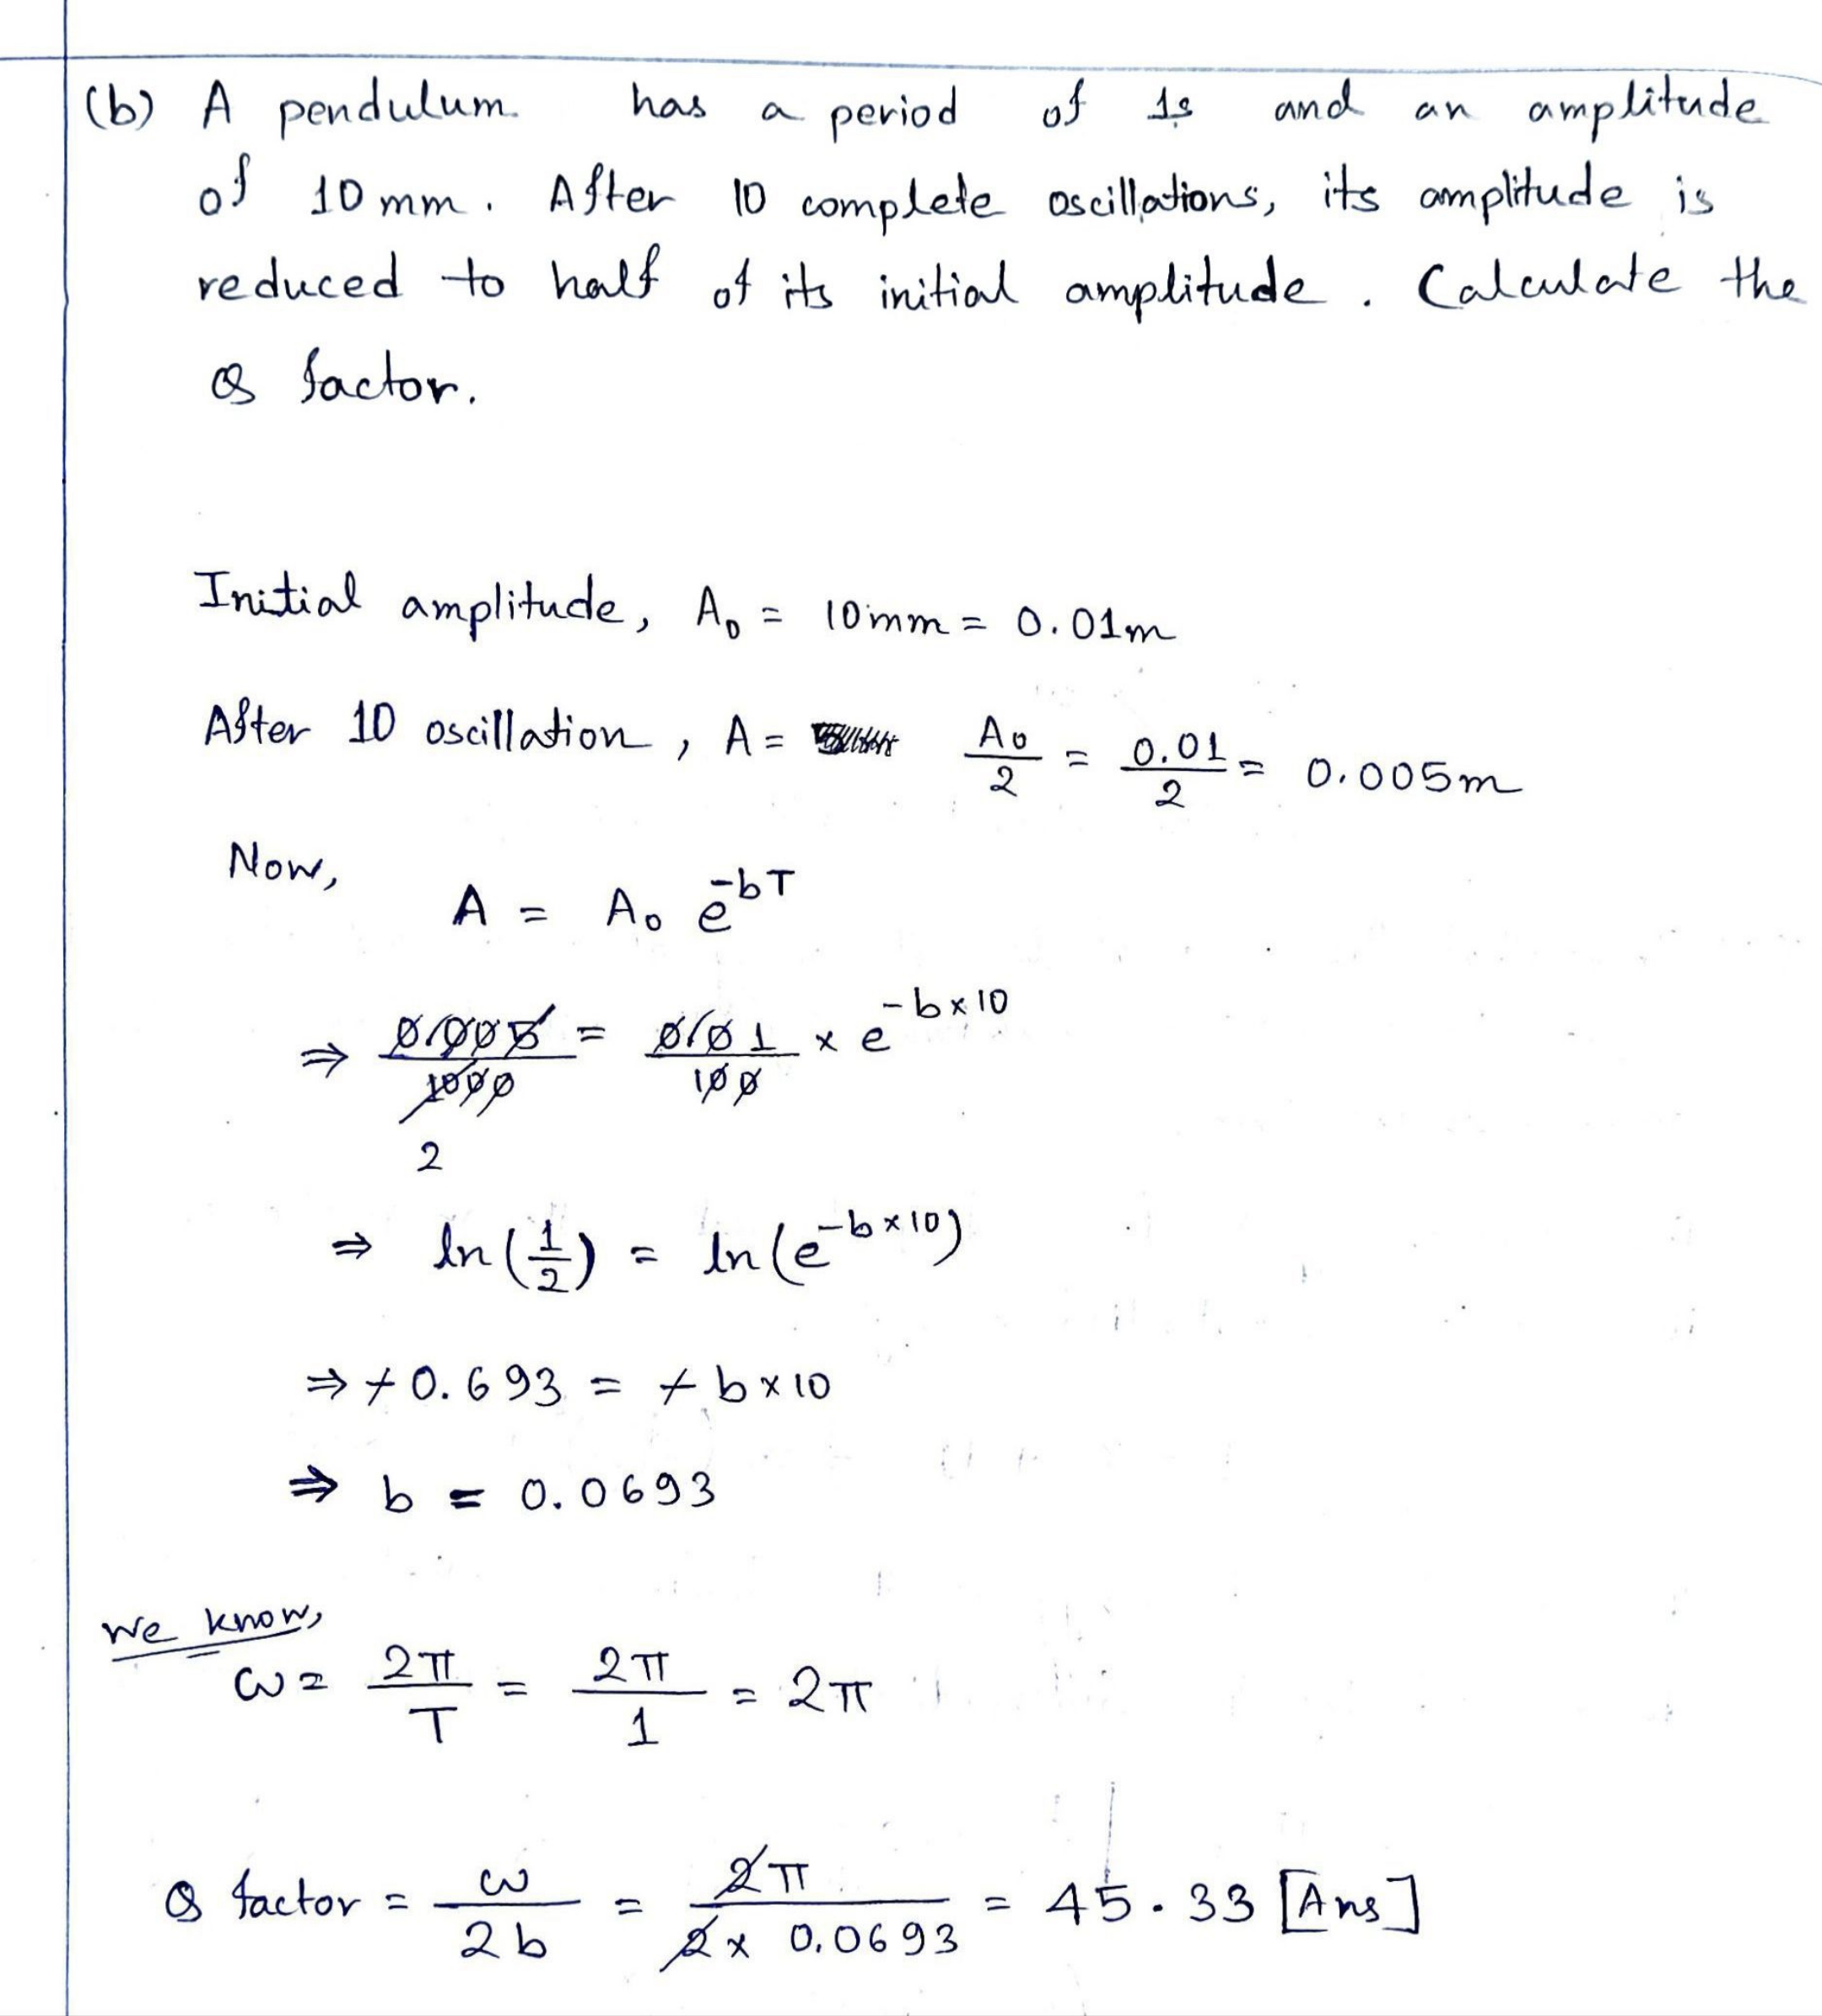 (b) A pendulum has a period of 1s and an amplitude
of 10 mm. After 10 complete oscillations, its amplitude is
reduced to half of its initial amplitude. Calculate the
Q factor.
Initial amplitude, A₀ = 10mm = 0.01m
After 10 oscillation, A = A₀/2 = 0.01/2 = 0.005m
Now,
A = A₀ e^-bT
⇒ 0.005/1000 = 0.01/100 × e^-b×10
2
⇒ ln(1/2) = ln(e^-b×10)
⇒ -0.693 = -b×10
⇒ b = 0.0693
We know,
ω = 2π/T = 2π/1 = 2π
Q factor = ω/2b = 2π/2× 0.0693 = 45.33 [Ans]